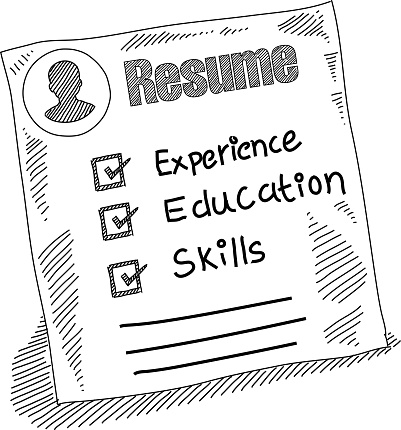 Resume
Experience
Education
Skills